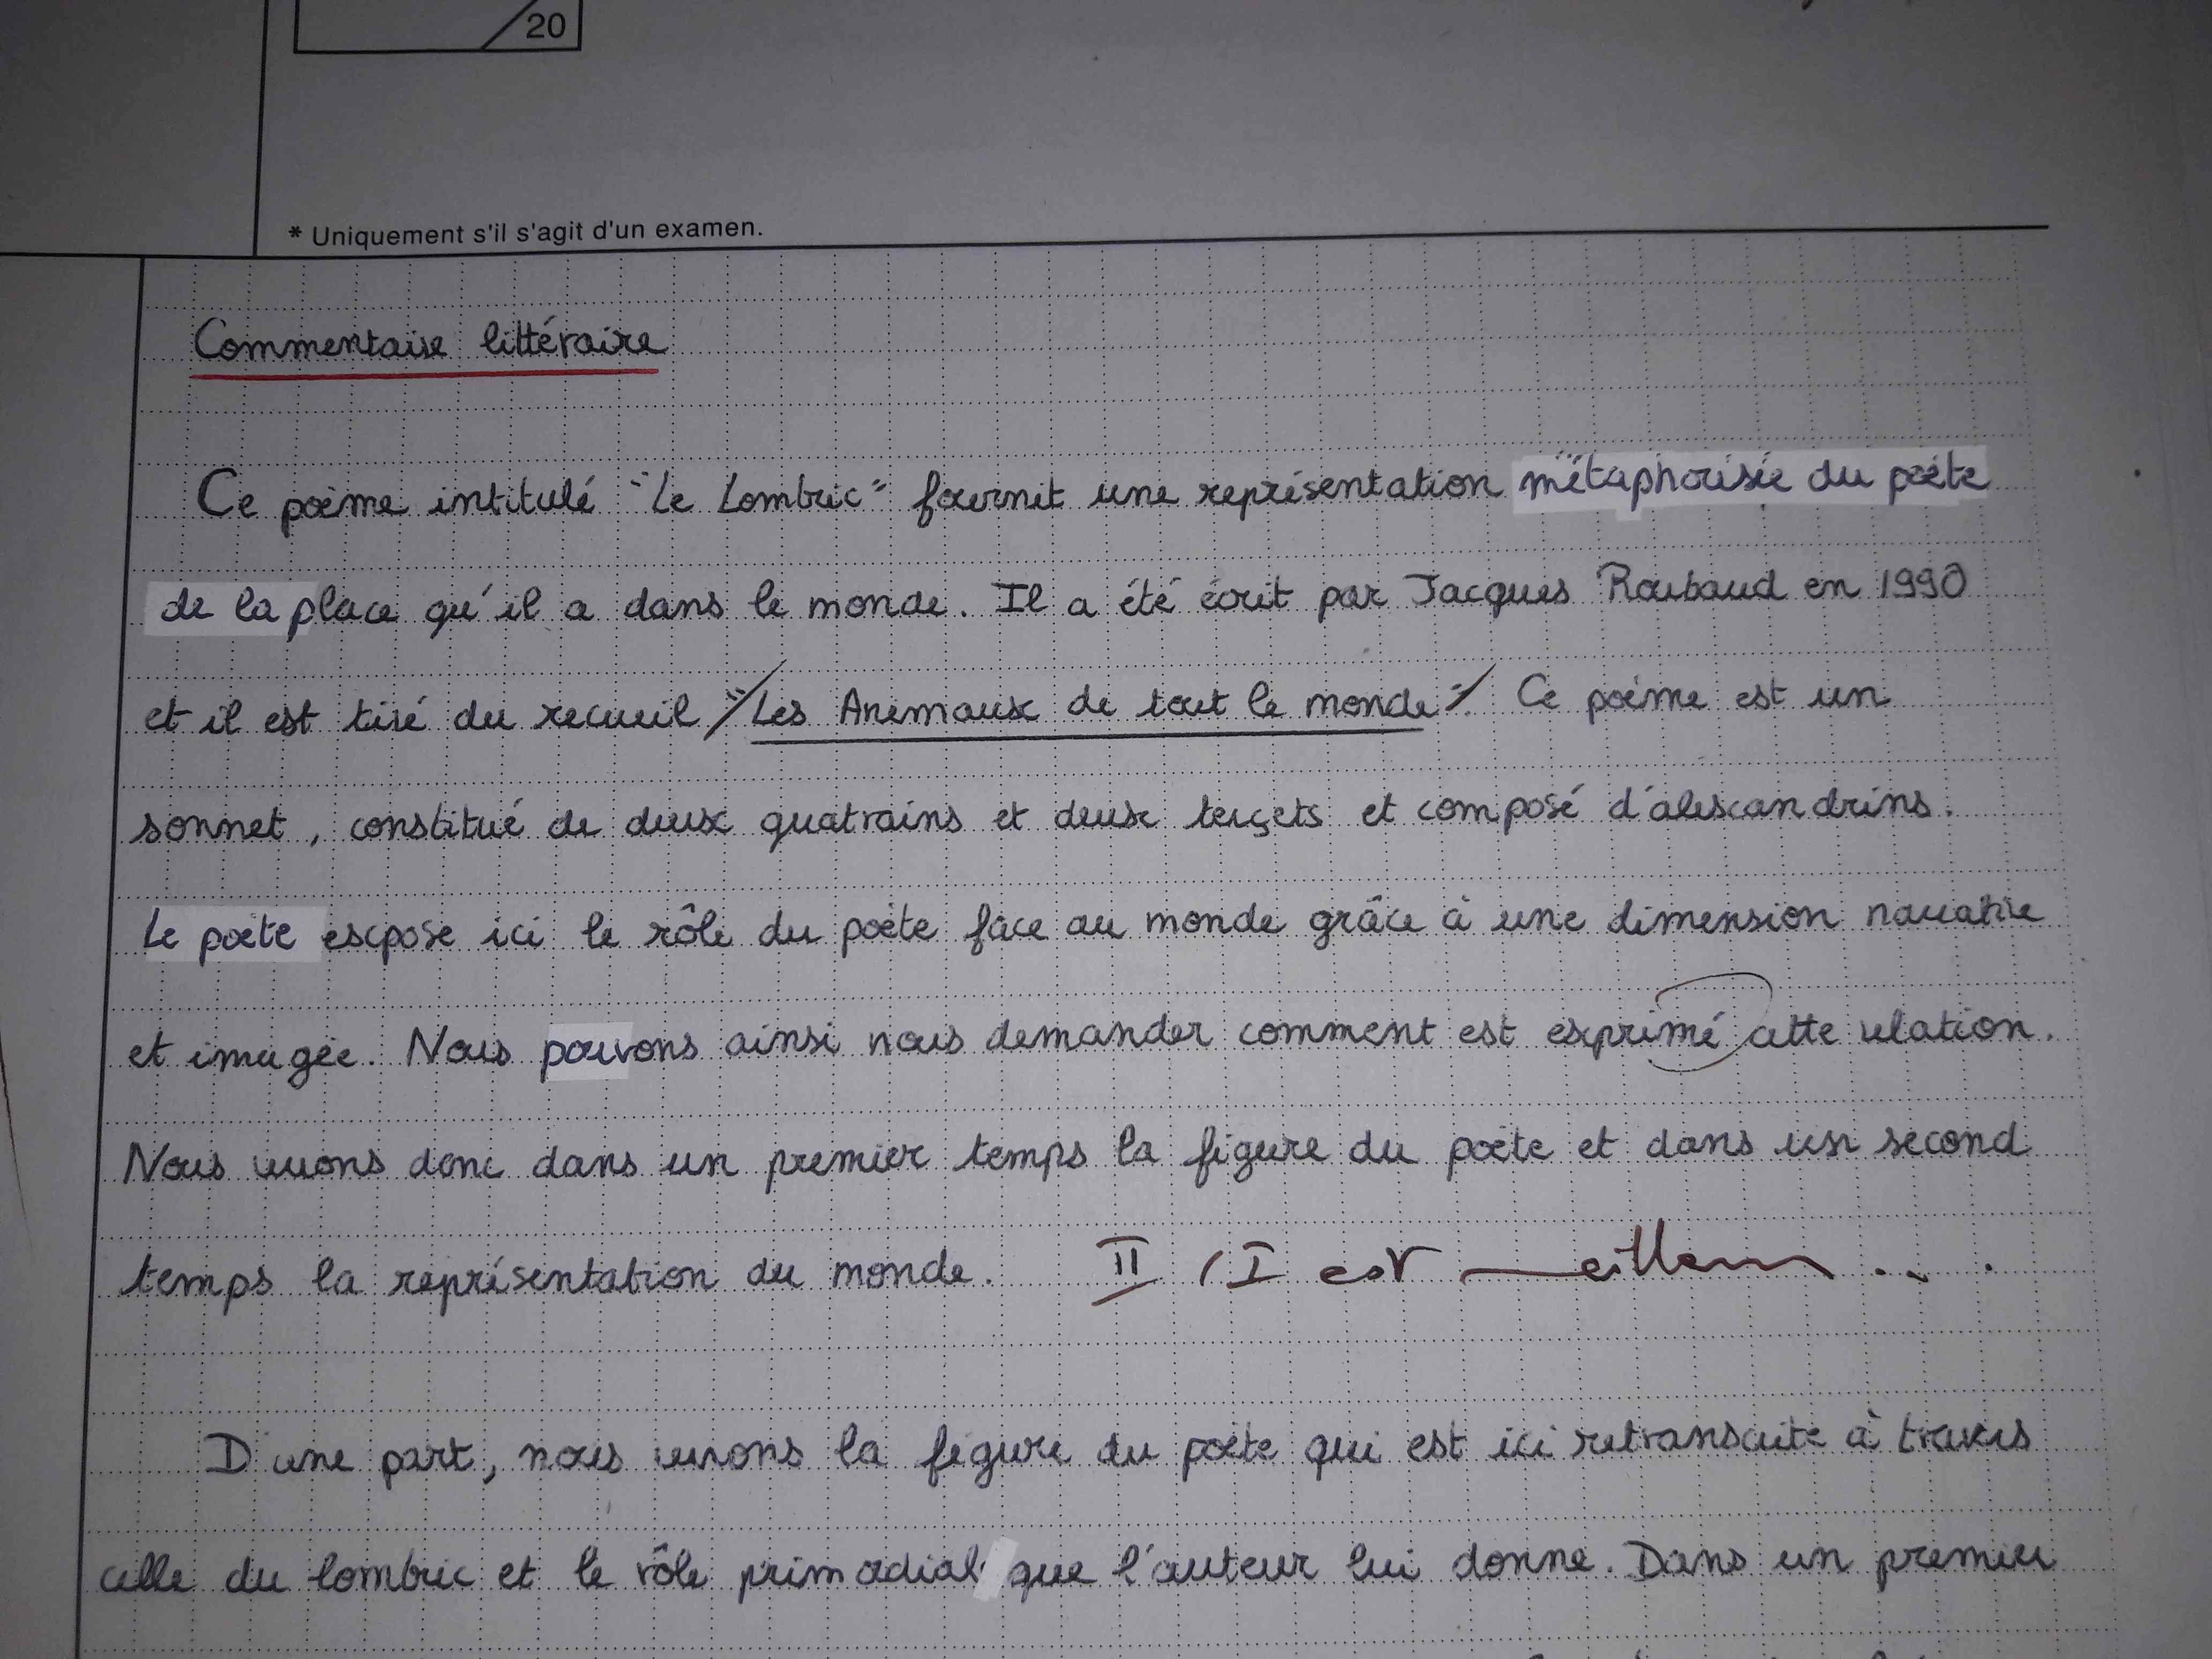 /20
* Uniquement s'il s'agit d'un examen.
Commentaire littéraire
Ce poème intitulé "Le Lombric" fournit une représentation métaphorisée du poète
de la place qu'il a dans le monde. Il a été écrit par Jacques Roubaud en 1990
et il est tiré du recueil "Les Animaux de tout le monde". Ce poème est un
sonnet, constitué de deux quatrains et deux terçets et composé d'alexandrins.
Le poète expose ici le rôle du poète face au monde grâce à une dimension narrative
et imagée. Nous pouvons ainsi nous demander comment est exprimé cette relation.
Nous verrons donc dans un premier temps la figure du poète et dans un second
temps la représentation du monde. II / I est meilleur...
D'une part, nous verrons la figure du poète qui est ici retranscrite à travers
celle du lombric et le rôle primordial que l'auteur lui donne. Dans un premier